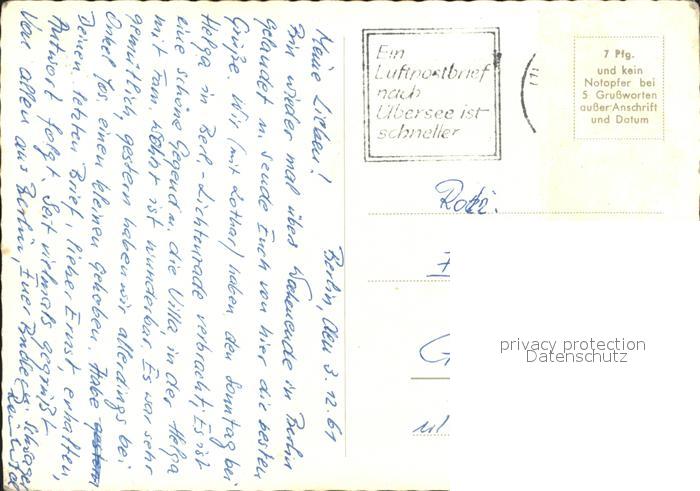 Berlin, den 3.12.61
Meine Lieben!
Bin wieder mal übers Wochenende in Berlin
gelandet u. sende Euch von hier die besten
Grüße. Wir (mit Lothar) haben den Sonntag bei
Helga in Berl.-Lichtenrade verbracht. Es ist
eine schöne Gegend u. die Villa, in der Helga
mit Fam. wohnt ist wunderbar. Es war sehr
gemütlich, gestern haben wir allerdings bei
Onkel Jos. einen kleinen gehoben. Habe gestern
Deinen letzten Brief, lieber Ernst, erhalten,
Antwort folgt. Seit vielmals gegrüßt
Von allen aus Berlin, Euer Bruder u. Schwager
Ein
Luftpostbrief
nach
Übersee ist
schneller
7 Pfg.
und kein
Notopfer bei
5 Grußworten
außer Anschrift
und Datum
privacy protection
Datenschutz